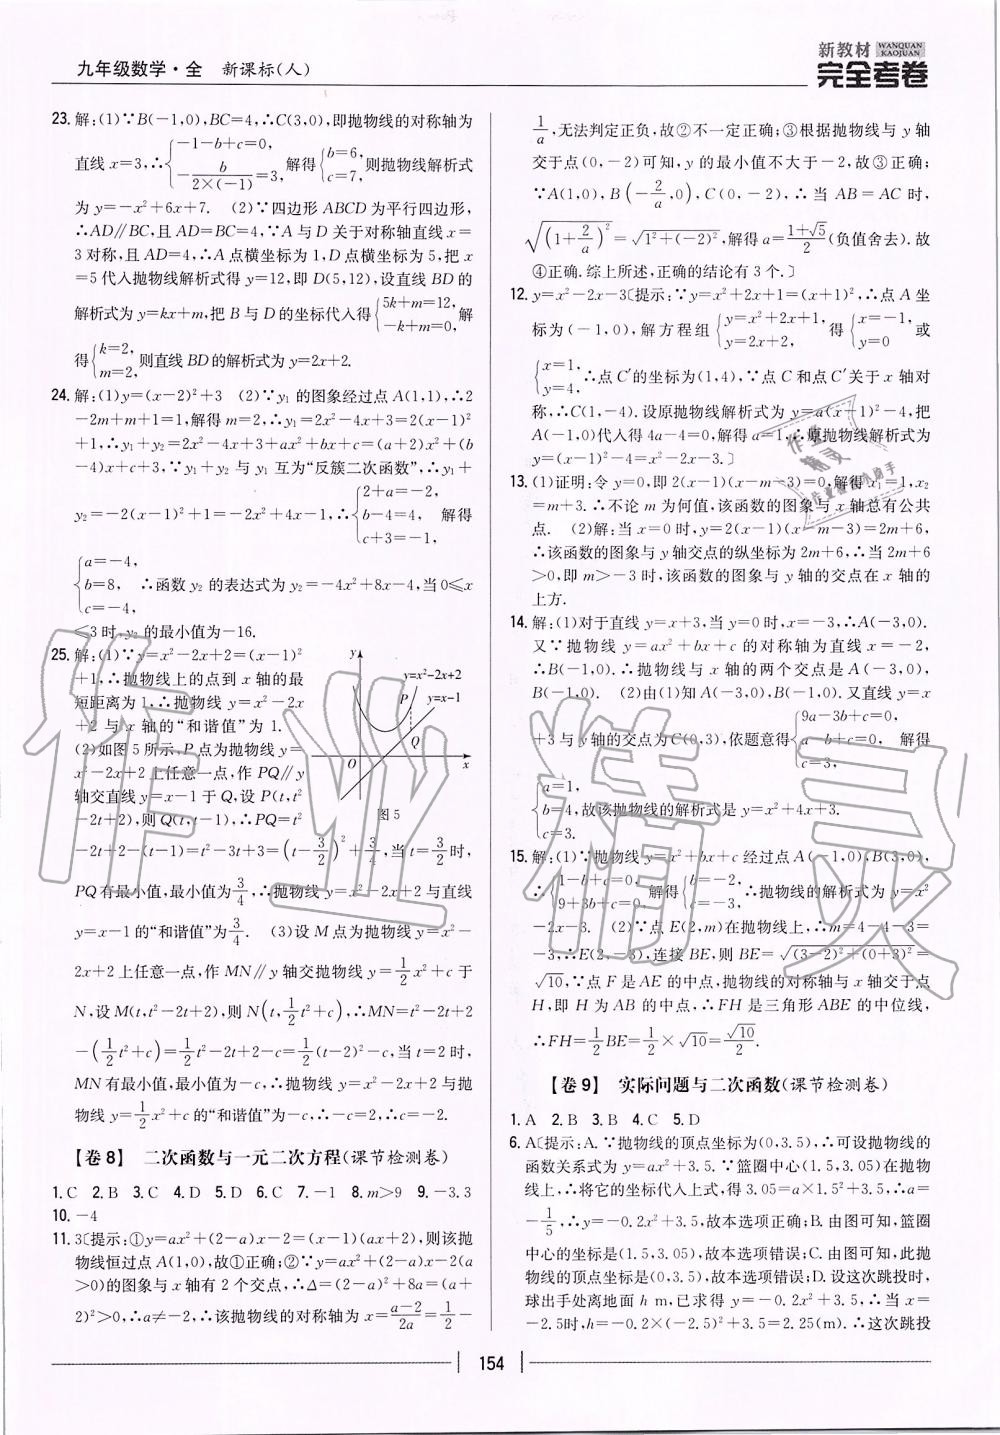 九年级数学·全 新课标(人)
新教材 WANQUAN KAOJUAN
完全考卷
23. 解:(1)∵B(-1,0),BC=4,∴C(3,0),即抛物线的对称轴为
直线 x=3,∴{-1-b+c=0, -b/(2×(-1))=3, 解得{b=6, c=7, 则抛物线解析式
为 y=-x²+6x+7. (2)∵四边形 ABCD 为平行四边形,
∴AD∥BC,且 AD=BC=4,∵A 与 D 关于对称轴直线 x=
3 对称,且 AD=4,∴A 点横坐标为 1,D 点横坐标为 5,把 x
=5 代入抛物线解析式得 y=12,即 D(5,12),设直线 BD 的
解析式为 y=kx+m,把 B 与 D 的坐标代入得{5k+m=12, -k+m=0, 解
得{k=2, m=2, 则直线 BD 的解析式为 y=2x+2.
24. 解:(1)y=(x-2)²+3 (2)∵y₁ 的图象经过点 A(1,1),∴2
-2m+m+1=1,解得 m=2,∴y₁=2x²-4x+3=2(x-1)²
+1,∴y₁+y₂=2x²-4x+3+ax²+bx+c=(a+2)x²+(b
-4)x+c+3,∵y₁+y₂ 与 y₁ 互为“反簇二次函数”,∴y₁+
y₂=-2(x-1)²+1=-2x²+4x-1,∴{2+a=-2, b-4=4, c+3=-1, 解得
{a=-4, b=8, c=-4, ∴函数 y₂ 的表达式为 y₂=-4x²+8x-4,当 0≤x
≤3 时,y₂ 的最小值为-16.
25. 解:(1)∵y=x²-2x+2=(x-1)²
+1,∴抛物线上的点到 x 轴的最
短距离为 1,∴抛物线 y=x²-2x
+2 与 x 轴的“和谐值”为 1.
(2)如图 5 所示,P 点为抛物线 y=
x²-2x+2 上任意一点,作 PQ∥y
轴交直线 y=x-1 于 Q,设 P(t,t²
-2t+2),则 Q(t,t-1),∴PQ=t²
-2t+2-(t-1)=t²-3t+3=(t-3/2)²+3/4,当 t=3/2 时,
PQ 有最小值,最小值为3/4,∴抛物线 y=x²-2x+2 与直线
y=x-1 的“和谐值”为3/4. (3)设 M 点为抛物线 y=x²-
2x+2 上任意一点,作 MN∥y 轴交抛物线 y=1/2x²+c 于
N,设 M(t,t²-2t+2),则 N(t,1/2t²+c),∴MN=t²-2t+2
-(1/2t²+c)=1/2t²-2t+2-c=1/2(t-2)²-c,当 t=2 时,
MN 有最小值,最小值为-c,∴抛物线 y=x²-2x+2 与抛
物线 y=1/2x²+c 的“和谐值”为-c,∴-c=2,∴c=-2.
y
y=x²-2x+2
P
y=x-1
Q
O
x
图 5
【卷 8】 二次函数与一元二次方程(课节检测卷)
1. C 2. B 3. C 4. D 5. D 6. C 7. -1 8. m>9 9. -3,3
10. -4
11. 3〔提示:①y=ax²+(2-a)x-2=(x-1)(ax+2),则该抛
物线恒过点 A(1,0),故①正确;②∵y=ax²+(2-a)x-2(a
>0)的图象与 x 轴有 2 个交点,∴Δ=(2-a)²+8a=(a+
2)²>0,∴a≠-2,∴该抛物线的对称轴为 x=(a-2)/2a=1/2-
1/a,无法判定正负,故②不一定正确;③根据抛物线与 y 轴
交于点(0,-2)可知,y 的最小值不大于-2,故③正确;
∵A(1,0),B(-2/a,0),C(0,-2),∴当 AB=AC 时,
√((1+2/a)²)=√(1²+(-2)²),解得 a=(1+√5)/2(负值舍去).故
④正确.综上所述,正确的结论有 3 个.〕
12. y=x²-2x-3〔提示:∵y=x²+2x+1=(x+1)²,∴点 A 坐
标为(-1,0),解方程组{y=x²+2x+1, y=2x+2, 得{x=-1, y=0 或
{x=1, y=4, ∴点 C′的坐标为(1,4),∵点 C 和点 C′关于 x 轴对
称,∴C(1,-4).设原抛物线解析式为 y=a(x-1)²-4,把
A(-1,0)代入得 4a-4=0,解得 a=1,∴原抛物线解析式为
y=(x-1)²-4=x²-2x-3.〕
13. (1)证明:令 y=0,即 2(x-1)(x-m-3)=0,解得 x₁=1,x₂
=m+3.∴不论 m 为何值,该函数的图象与 x 轴总有公共
点. (2)解:当 x=0 时,y=2(x-1)(x-m-3)=2m+6,
∴该函数的图象与 y 轴交点的纵坐标为 2m+6,∴当 2m+6
>0,即 m>-3 时,该函数的图象与 y 轴的交点在 x 轴的
上方.
14. 解:(1)对于直线 y=x+3,当 y=0 时,x=-3,∴A(-3,0).
又∵抛物线 y=ax²+bx+c 的对称轴为直线 x=-2,
∴B(-1,0).∴抛物线与 x 轴的两个交点是 A(-3,0),
B(-1,0). (2)由(1)知 A(-3,0),B(-1,0).又直线 y=x
+3 与 y 轴的交点为 C(0,3),依题意得{9a-3b+c=0, a-b+c=0, c=3, 解得
{a=1, b=4, c=3. 故该抛物线的解析式是 y=x²+4x+3.
15. 解:(1)∵抛物线 y=x²+bx+c 经过点 A(-1,0),B(3,0),
∴{1-b+c=0, 9+3b+c=0, 解得{b=-2, c=-3, ∴抛物线的解析式为 y=x²
-2x-3. (2)∵点 E(2,m)在抛物线上,∴m=4-4-3=
-3,∴E(2,-3),连接 BE,则 BE=√((3-2)²+(0+3)²)=
√10,∵点 F 是 AE 的中点,抛物线的对称轴与 x 轴交于点
H,即 H 为 AB 的中点,∴FH 是三角形 ABE 的中位线,
∴FH=1/2BE=1/2×√10=√10/2.
【卷 9】 实际问题与二次函数(课节检测卷)
1. A 2. B 3. B 4. C 5. D
6. A〔提示:A. ∵抛物线的顶点坐标为(0,3.5),∴可设抛物线的
函数关系式为 y=ax²+3.5.∵篮圈中心(1.5,3.05)在抛物
线上,∴将它的坐标代入上式,得 3.05=a×1.5²+3.5,∴a=
-1/5,∴y=-0.2x²+3.5,故本选项正确;B. 由图可知,篮圈
中心的坐标是(1.5,3.05),故本选项错误;C. 由图可知,此抛
物线的顶点坐标是(0,3.5),故本选项错误;D. 设这次跳投时,
球出手处离地面 h m,已求得 y=-0.2x²+3.5,∴当 x=
-2.5时,h=-0.2×(-2.5)²+3.5=2.25(m).∴这次跳投
154
作业精灵